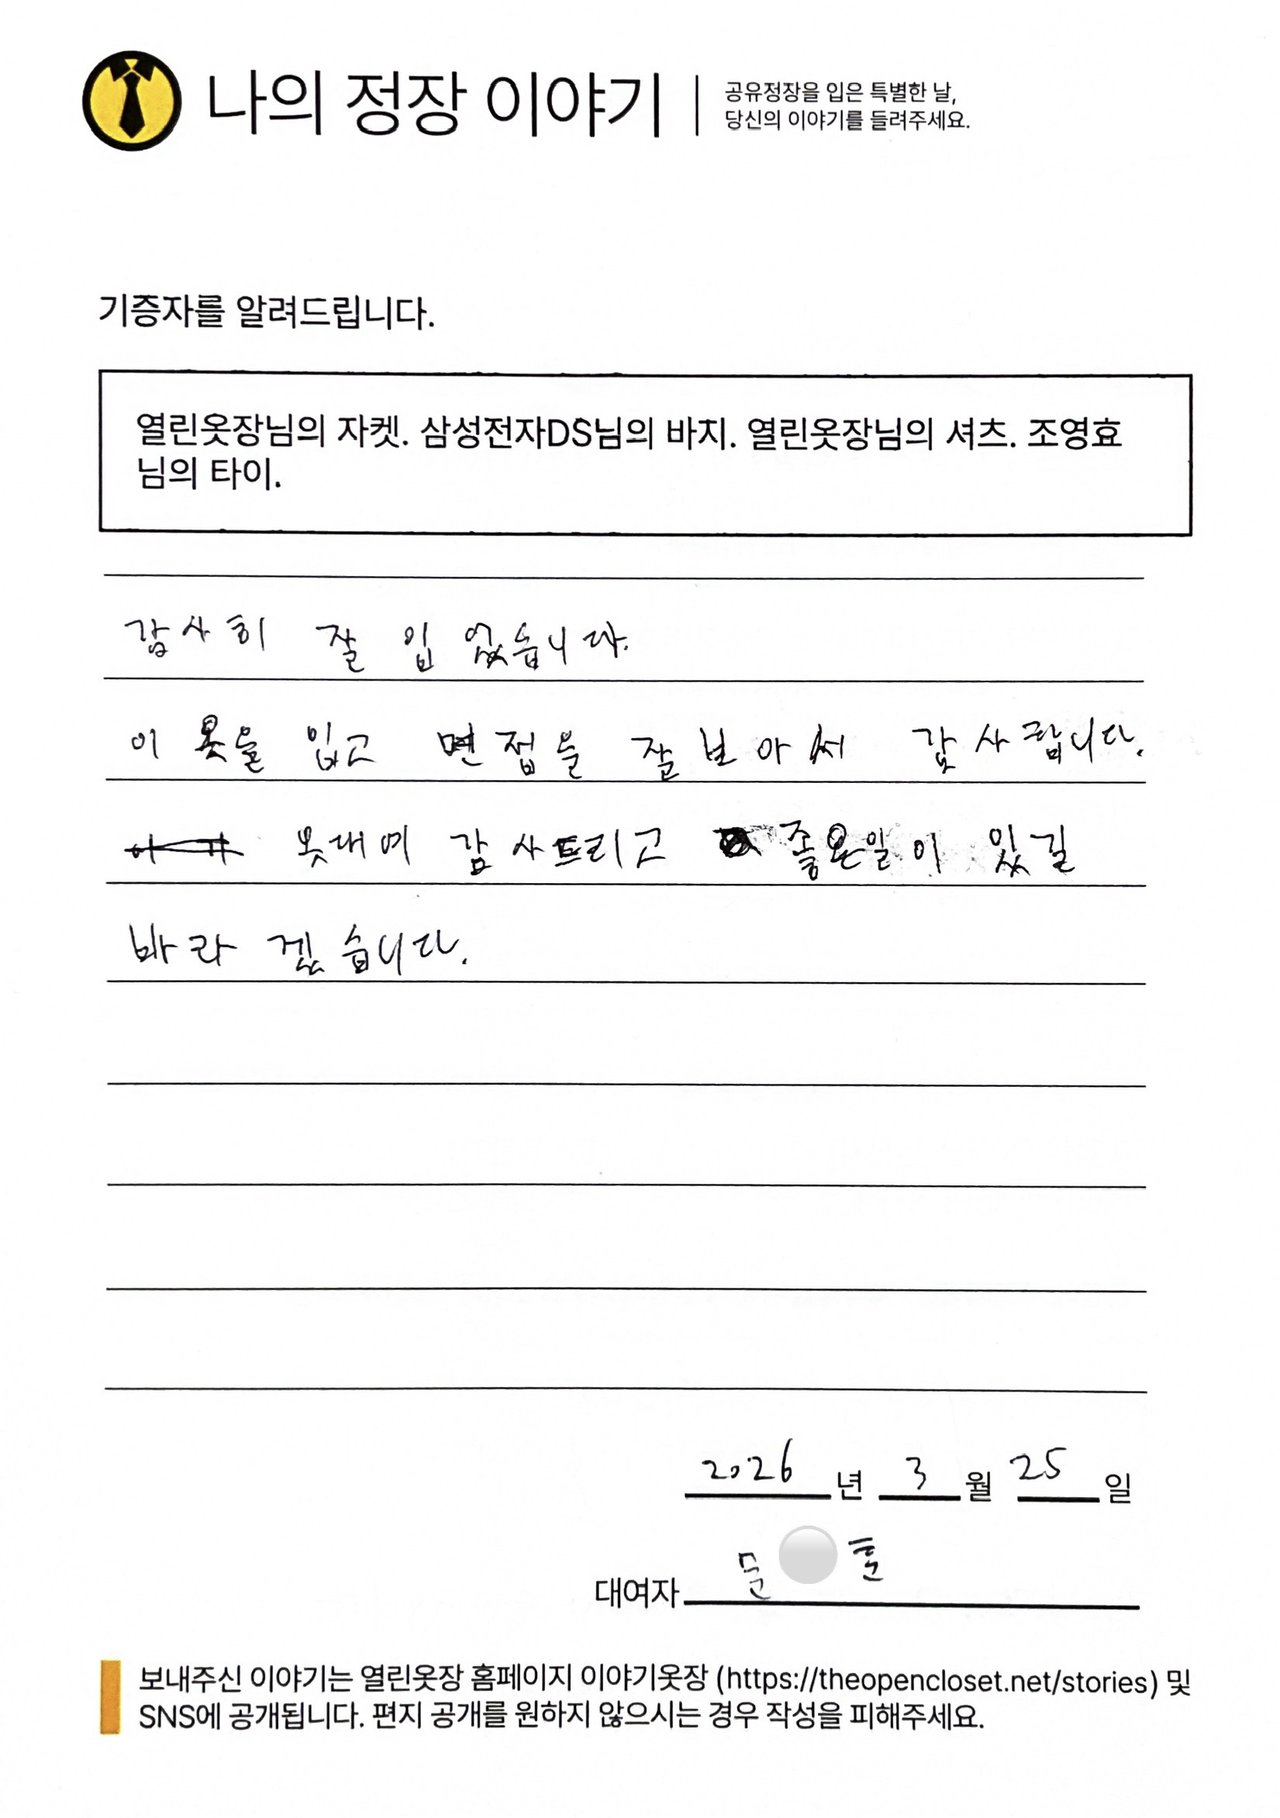 나의 정장 이야기
공유정장을 입은 특별한 날,
당신의 이야기를 들려주세요.
기증자를 알려드립니다.
열린옷장님의 자켓. 삼성전자DS님의 바지. 열린옷장님의 셔츠. 조영효
님의 타이.
감사히 잘 입었습니다.
이 옷을 입고 면접을 잘보아서 감사합니다.
옷대여 감사드리고 좋은일이 있길
바라겠습니다.
2026 년 3 월 25 일
대여자 문 훈
보내주신 이야기는 열린옷장 홈페이지 이야기옷장 (https://theopencloset.net/stories) 및
SNS에 공개됩니다. 편지 공개를 원하지 않으시는 경우 작성을 피해주세요.